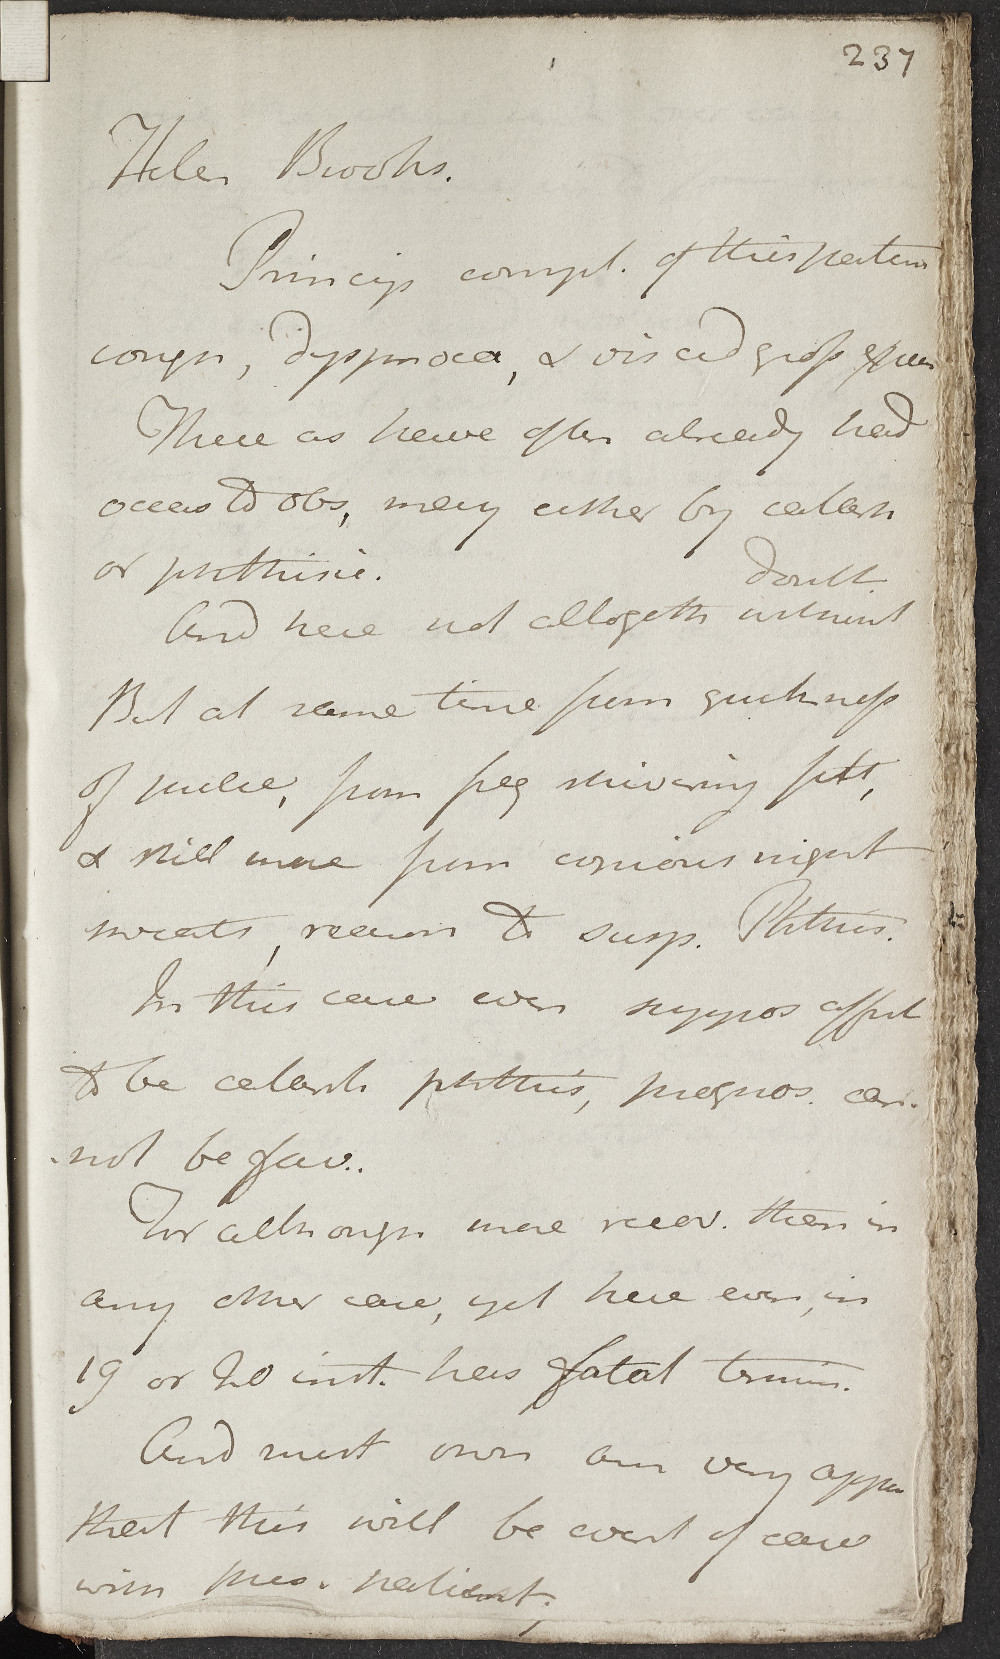 237
Helen Brooks.
Princip compl. of this patien
cough, dyspnoea, & viscid gross expec
These as have often already had
occas to obs, may either by catarh
or phthisic.
doubt
And here not altogeth without
But at same time from quickness
of pulse, from freq shivering fitt,
& still more from copious night
sweats, reason to susp. Phthis.
In this case even suppos affect
to be catarrh phthis, prognos. can
not be fav..
For although more recov. then in
any other case, yet here even, in
19 or 20 inst. has fatal termin.
And must own am very appre
that this will be event of case
with pres. patient.